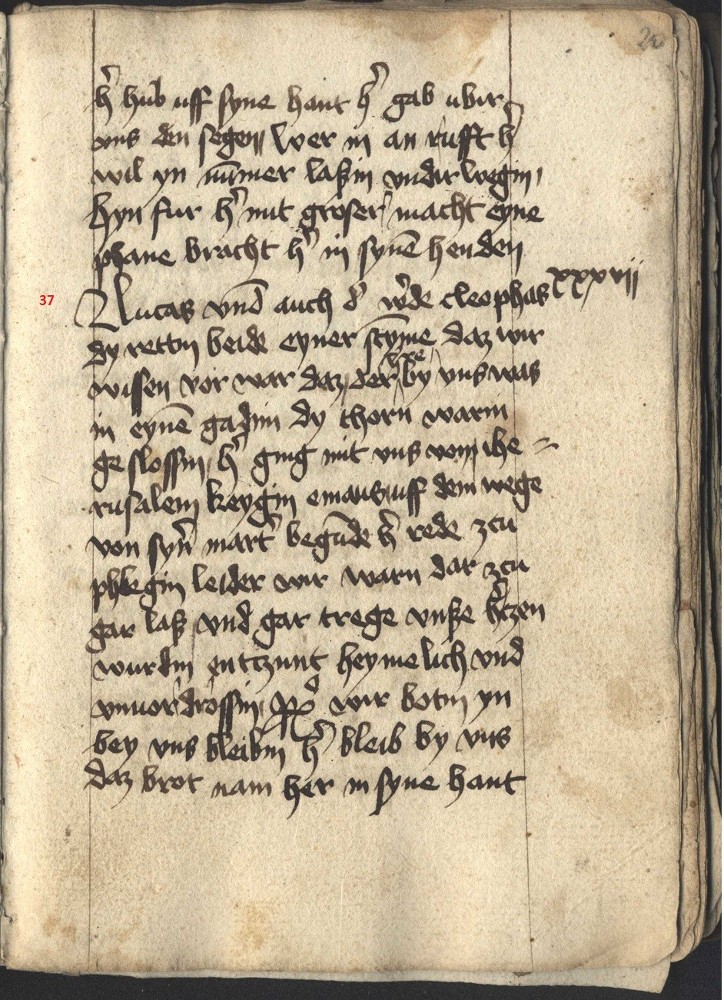 20
h' hub uff syne hant h' gab ubir
uns den segen Wer in an rufft h'
wil yn nūmer laßin undir wegin
hyn fur h' mit groser macht eyne
phane bracht h' in synē henden
37
Lucas unď auch d' w'de cleophas xxxvii
dy rettin beide eyner stȳme daz wir
wissen vor war daz der by uns was
in eynē gadim dy thorn warin
geslossin h' ging mit uns vom ihe
rusalem keygin emaus uff dem wege
von syn' mart' begūde h' rede zcu
phlegin leider wir warn dar zcu
gar laß und gar trege unße h'tzen
wurdin entczunt heymelich und
unuordrossin wir botin yn
bey uns bleibin h' bleib by uns
daz brot nam her in syne hant